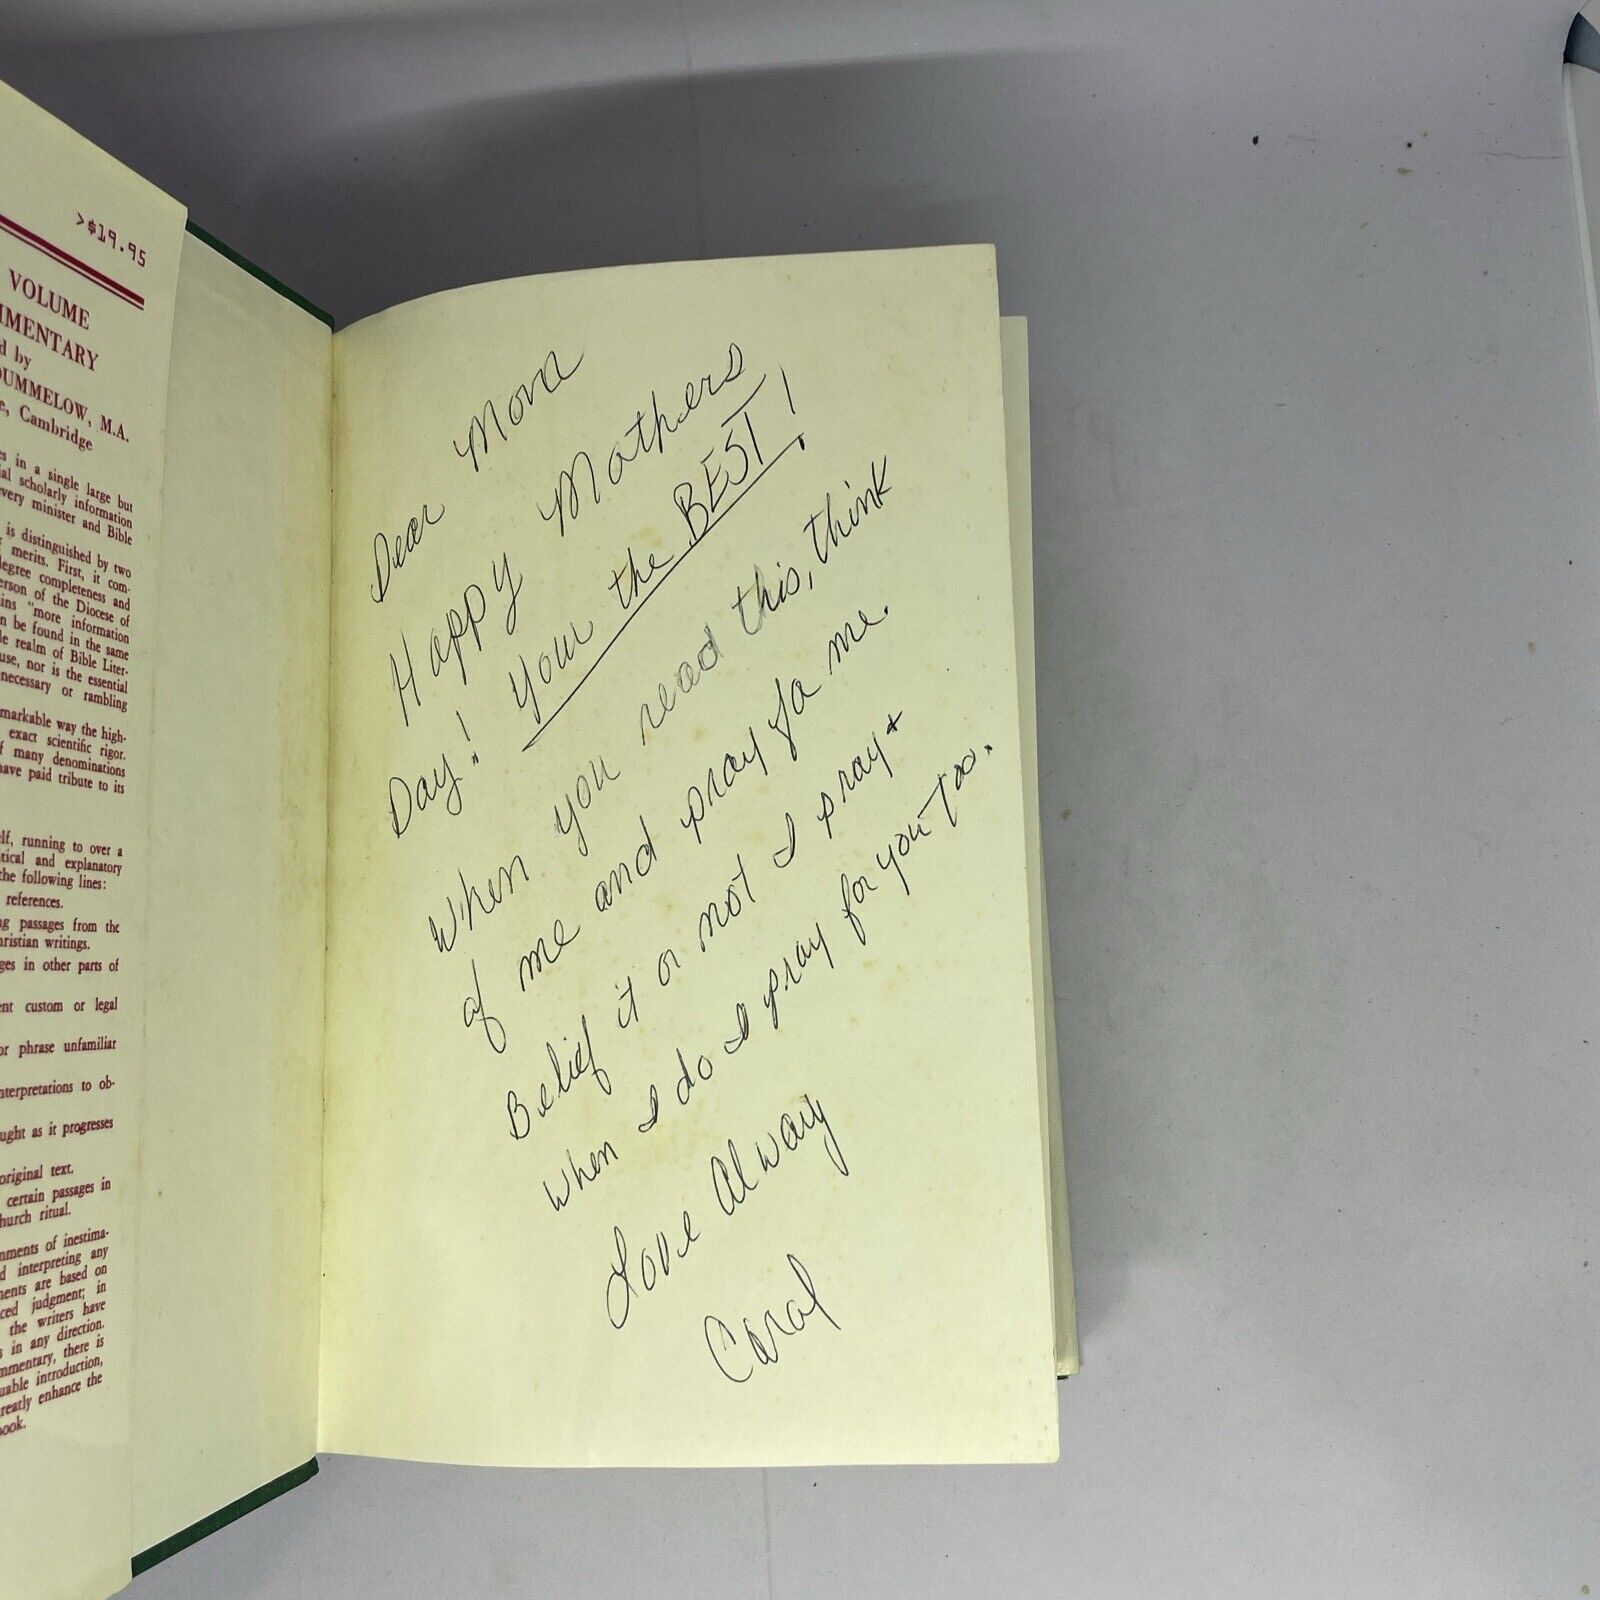 >$19.95
VOLUME
MMENTARY
d by
DUMMELOW, M.A.
e, Cambridge
es in a single large but
ial scholarly information
very minister and Bible
is distinguished by two
merits. First, it com-
degree completeness and
erson of the Diocese of
ins "more information
n be found in the same
le realm of Bible Liter-
use, nor is the essential
necessary or rambling
markable way the high-
exact scientific rigor.
f many denominations
have paid tribute to its
elf, running to over a
itical and explanatory
the following lines:
references.
ng passages from the
hristian writings.
ges in other parts of
ent custom or legal
or phrase unfamiliar
nterpretations to ob-
ught as it progresses
original text.
certain passages in
hurch ritual.
mments of inestima-
d interpreting any
ments are based on
ced judgment; in
the writers have
s in any direction.
mmentary, there is
uable introduction,
reatly enhance the
book.
Dear Mona
Happy Mothers
Day! Your the BEST!
When you read this, think
of me and pray fo me.
Belief it or not I pray +
when I do I pray for you Too.
Love Alway
Carol